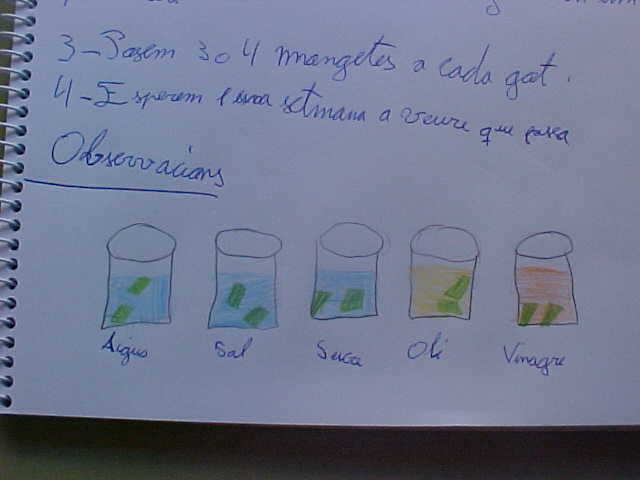 3 - Posem 3 o 4 mongetes a cada got.
4 - Esperem 1 setmana a veure que passa
Observacions
Aigua Sal Sucre Oli Vinagre